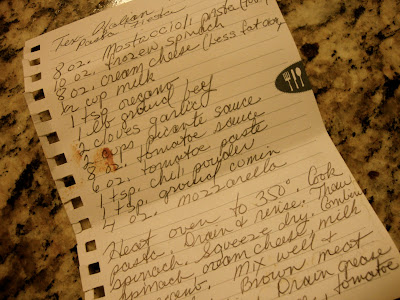 Tex Italian
Pasta Fiesta
8 oz. Mostaccioli pasta
10 oz. frozen spinach
8 oz. cream cheese (less fat okay)
1/2 cup milk
1 tsp oregano
1 lb ground beef
2 cloves garlic
2 cups picante sauce
8 oz. tomato sauce
6 oz. tomatoe paste
1 tsp. chili powder
1 tsp. ground cumin
4 oz. mozzarella
Heat oven to 350°. Cook
pasta. Drain & rinse. Thaw
spinach. Squeeze dry. Combine
spinach, cream cheese, milk
Mix well &
Brown meat
Drain grease
tomatoe